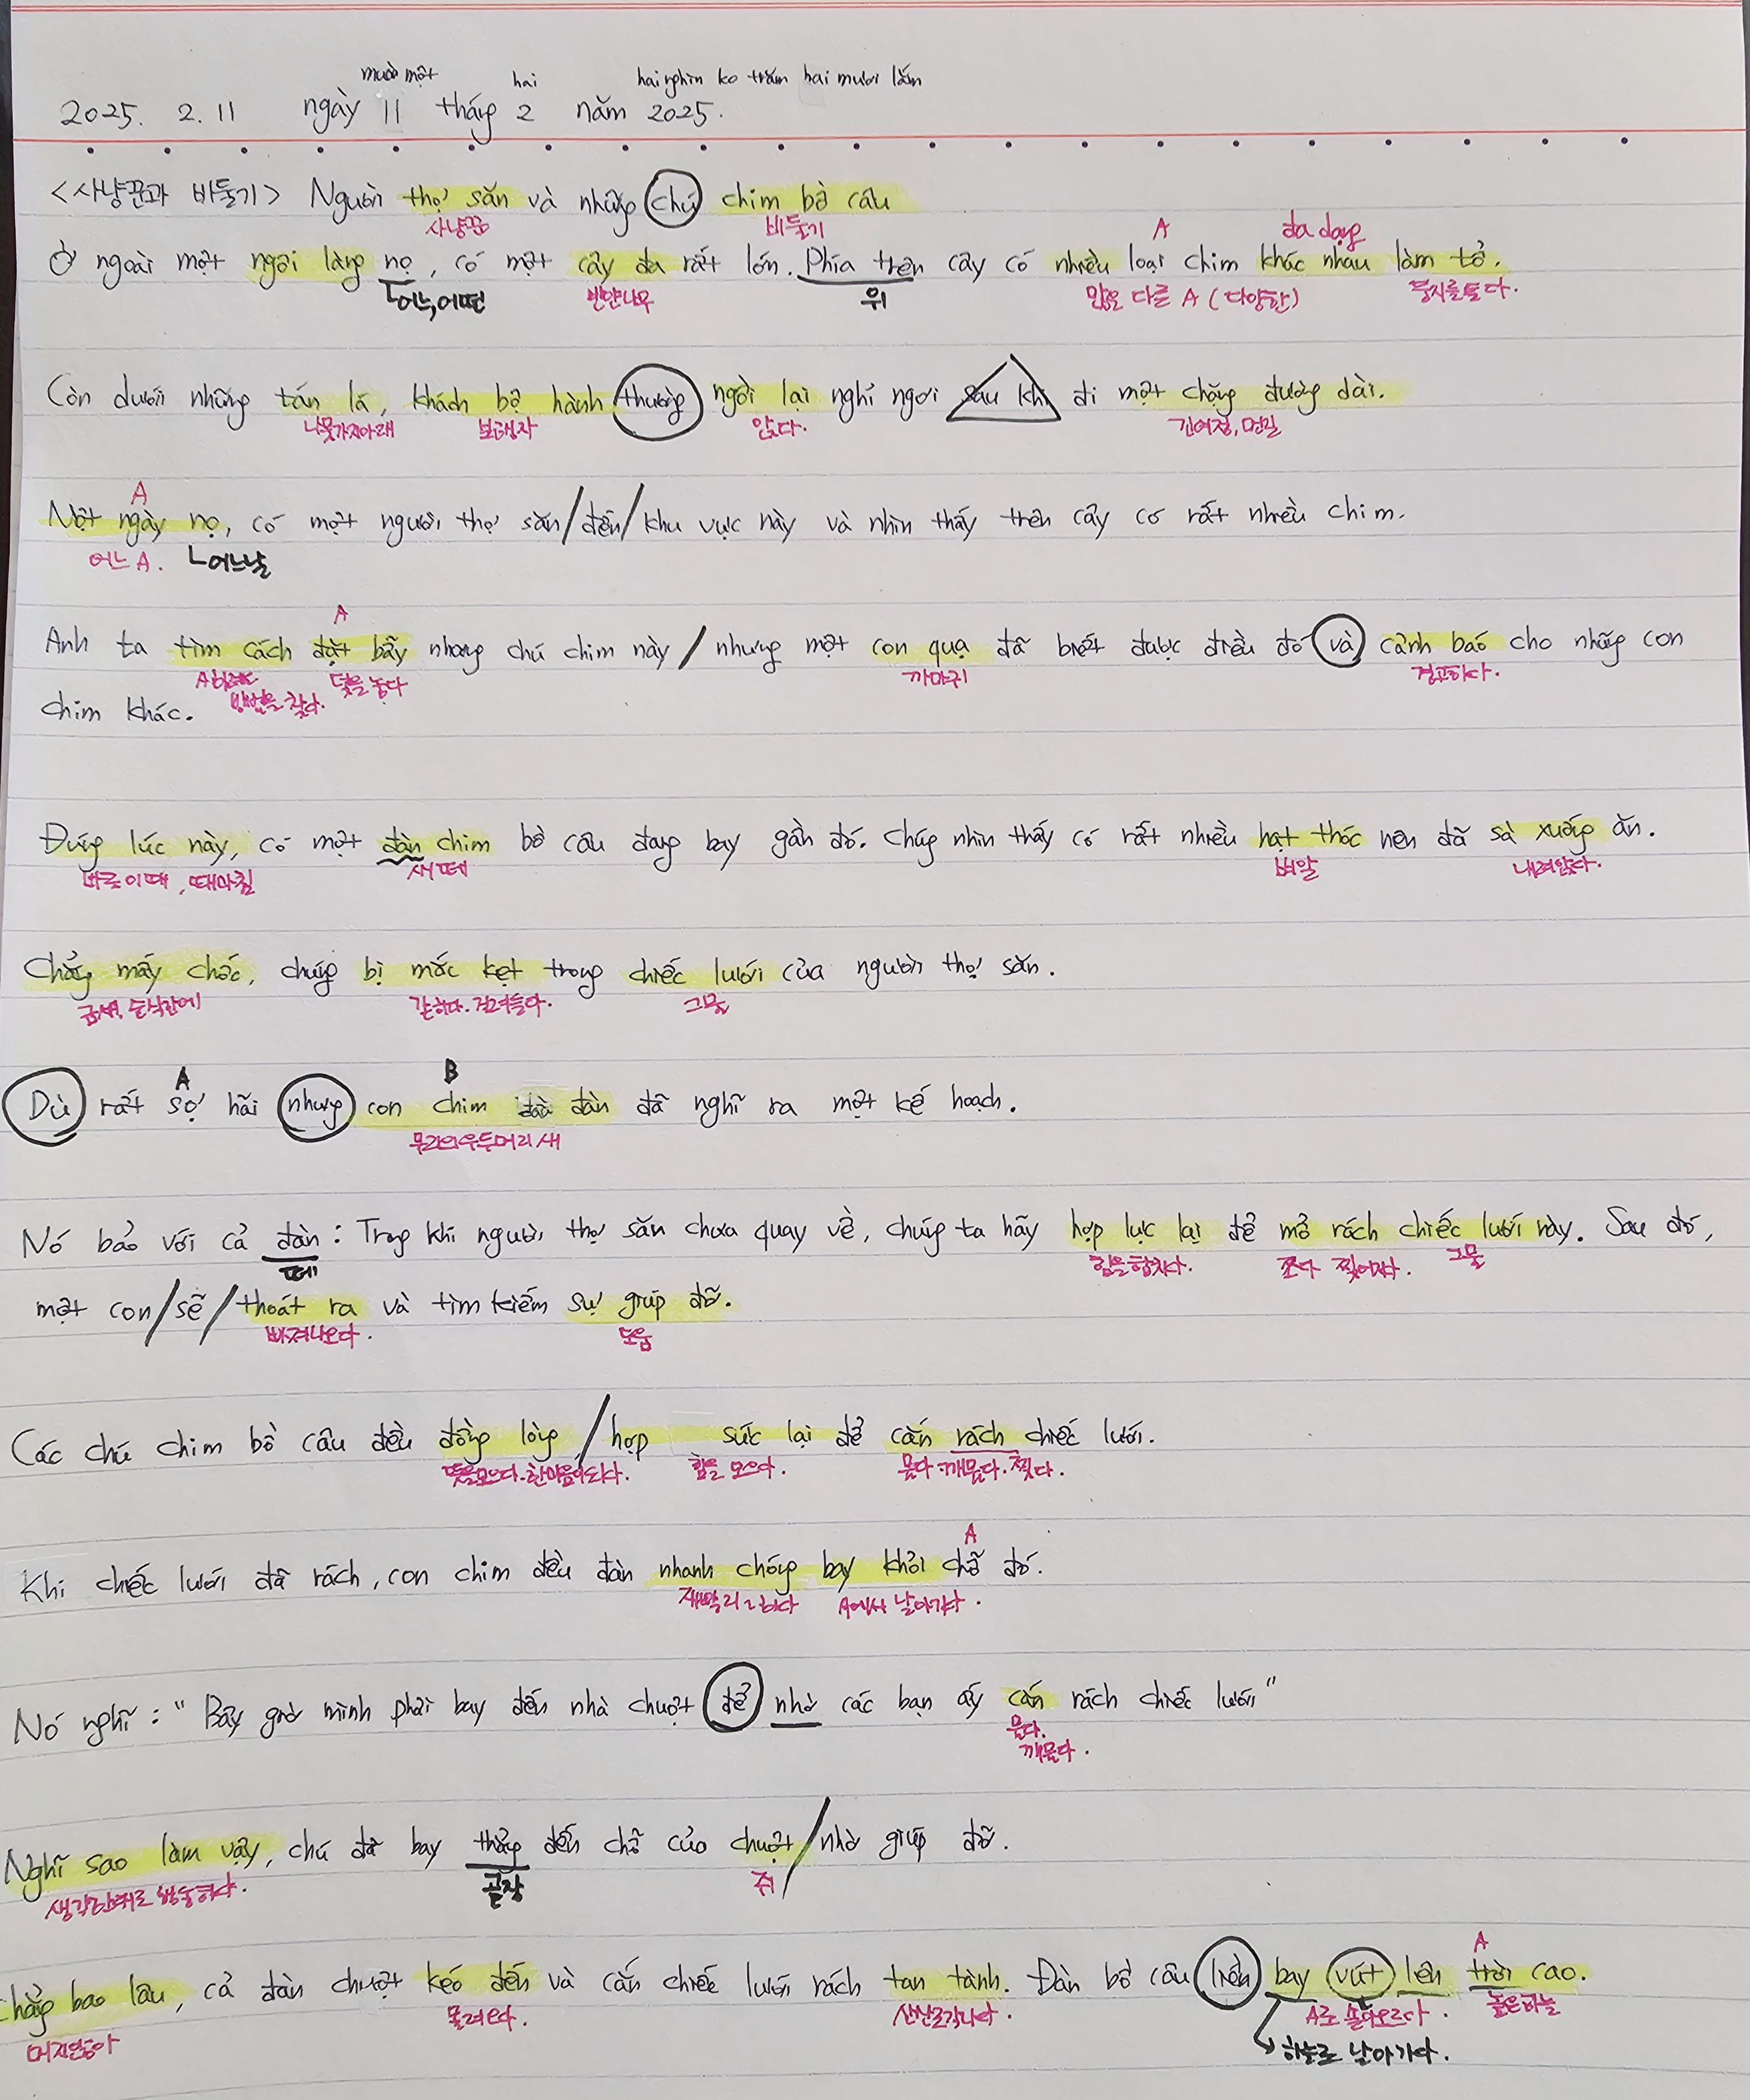 mười một hai hai nghìn ko trăm hai mươi lăm
2025. 2. 11 ngày 11 tháng 2 năm 2025.
<사냥꾼과 비둘기> Người thợ săn và những chú chim bồ câu
사냥꾼 비둘기 A đa dạng
Ở ngoài một ngôi làng nọ, có một cây đa rất lớn. Phía trên cây có nhiều loại chim khác nhau làm tổ.
어느, 어떤 반얀나무 위 많은 다른 A (다양한) 둥지를 틀다.
Còn dưới những tán lá, khách bộ hành thường ngồi lại nghỉ ngơi sau khi đi một chặng đường dài.
나뭇가지아래 보행자 앉다. 긴여정, 먼길
A
Một ngày nọ, có một người thợ săn/đến/khu vực này và nhìn thấy trên cây có rất nhiều chim.
어느 A. 어느날
A
Anh ta tìm cách đặt bẫy nhưng chú chim này / nhưng một con quạ đã biết được điều đó và cảnh báo cho những con
방법을 찾다. 덫을 놓다 까마귀 경고하다.
chim khác.
Đúng lúc này, có một đàn chim bồ câu đang bay gần đó. Chúng nhìn thấy có rất nhiều hạt thóc nên đã sà xuống ăn.
바로 이때, 때마침 새떼 벼알 내려앉다.
Chẳng mấy chốc, chúng bị mắc kẹt trong chiếc lưới của người thợ săn.
금세, 순식간에 갇히다. 걸려들다. 그물
A B
Dù rất sợ hãi nhưng con chim đầu đàn đã nghĩ ra một kế hoạch.
무리의 우두머리 새
Nó bảo với cả đàn: Trong khi người thợ săn chưa quay về, chúng ta hãy hợp lực lại để mổ rách chiếc lưới này. Sau đó,
떼 힘을 합치다. 쪼다 찢어지다. 그물
một con/sẽ/thoát ra và tìm kiếm sự giúp đỡ.
빠져나오다. 도움
Các chú chim bồ câu đều đồng lòng/hợp sức lại để cắn rách chiếc lưới.
뜻을모으다. 한마음이되다. 힘을 모으다. 물다. 깨물다. 찢다.
A
Khi chiếc lưới đã rách, con chim đầu đàn nhanh chóng bay khỏi chỗ đó.
A에서 날아가다.
Nó nghĩ: "Bây giờ mình phải bay đến nhà chuột để nhờ các bạn ấy cắn rách chiếc lưới"
물다.
깨물다.
Nghĩ sao làm vậy, chú đã bay thẳng đến chỗ của chuột/nhờ giúp đỡ.
생각한대로 행동하다. 곧장 쥐
A
Chẳng bao lâu, cả đàn chuột kéo đến và cắn chiếc lưới rách tan tành. Đàn bồ câu liền bay vút lên trời cao.
머지않아 몰려오다. 산산조각나다. A로 솟아오르다. 높은하늘
하늘로 날아가다.